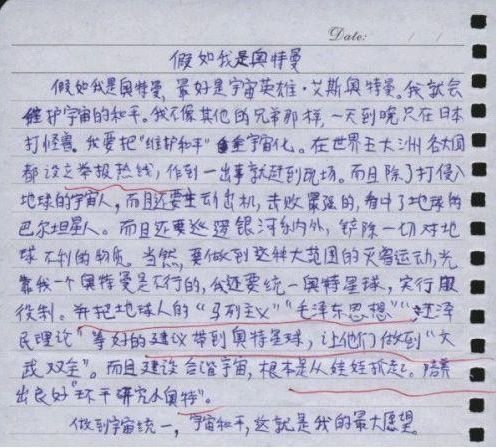 Date: / /
假如我是奥特曼
假如我是奥特曼，最好是宇宙英雄·艾斯奥特曼。我就会
维护宇宙的和平。我不像其他的兄弟那样，一天到晚只在日本
打怪兽。我要把“维护和平”宇宙化。在世界五大洲各大国
都设立举报热线，作到一出事就赶到现场。而且除了打侵入
地球的宇宙人，而且还要主动出机，击败最强的，看中了地球的
巴尔坦星人。而且还要巡逻银河系内外，铲除一切对地
球不利的物质。当然，要做到这种大范围的灭害运动，光
靠我一个奥特曼是不行的，我还要统一奥特星球，实行服
役制。并把地球人的“马列主义”“毛泽东思想”“江泽
民理论”等好的建议带到奥特星球，让他们做到“文
武双全”。而且建设合谐宇宙，根本是从娃娃抓起。培养
出良好“环干研究小奥特”。
做到宇宙统一，宇宙和平，这就是我的最大愿望。